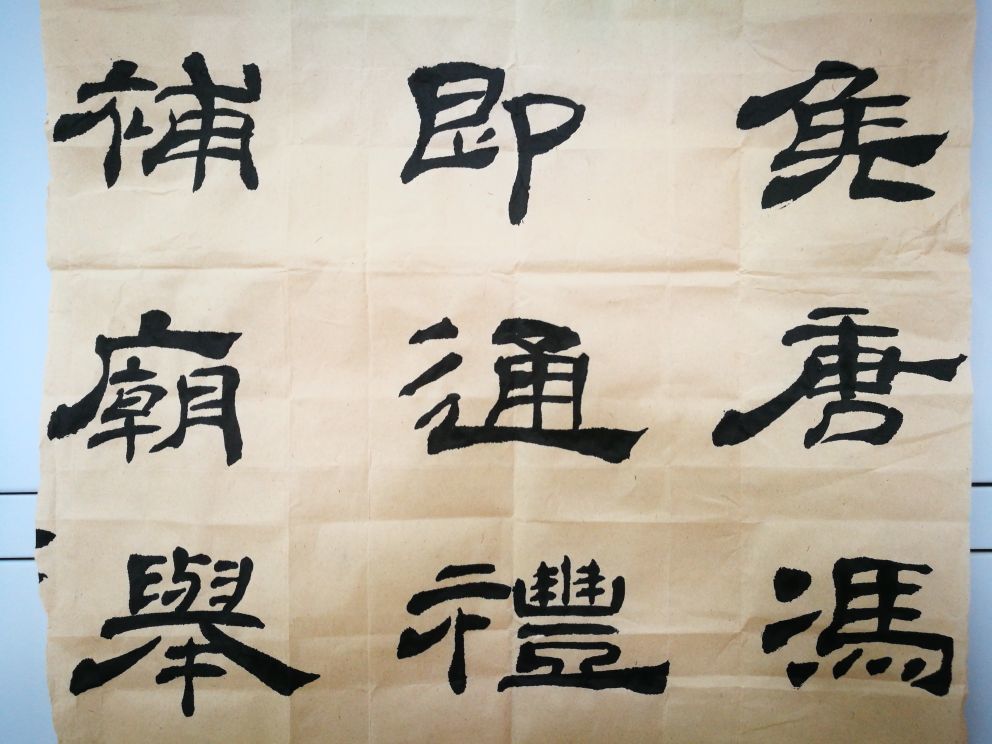 唐馮
即通禮
補廟舉